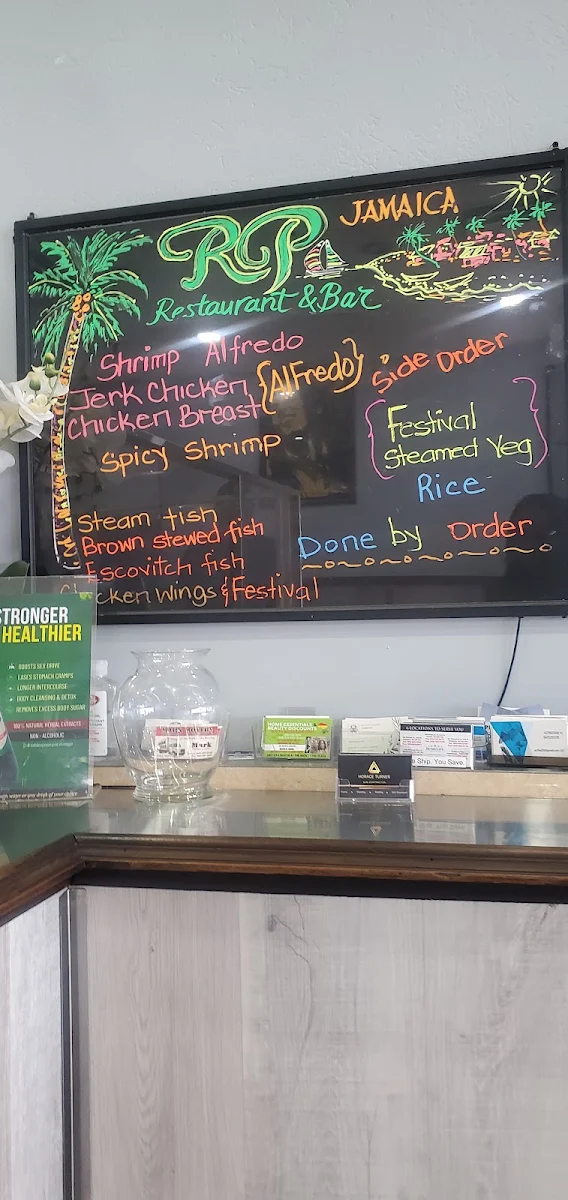 JAMAICA
RP
Restaurant & Bar
Shrimp Alfredo
Jerk Chicken
Chicken Breast
{Alfredo}
Spicy Shrimp
Steam fish
Brown stewed fish
Escovitch fish
Chicken Wings & Festival
Side Order
Festival
Steamed Veg
Rice
Done by Order
STRONGER
HEALTHIER
BOOSTS SEX DRIVE
EASES STOMACH CRAMPS
LONGER INTERCOURSE
BODY CLEANSING & DETOX
REMOVES EXCESS BODY SUGAR
100% NATURAL HERBAL EXTRACTS
NON - ALCOHOLIC
Mark
HOME ESSENTIALS
BEAUTY DISCOUNTS
LOCATIONS TO SERVE YOU
Ship. You Save.
HORACE TURNER